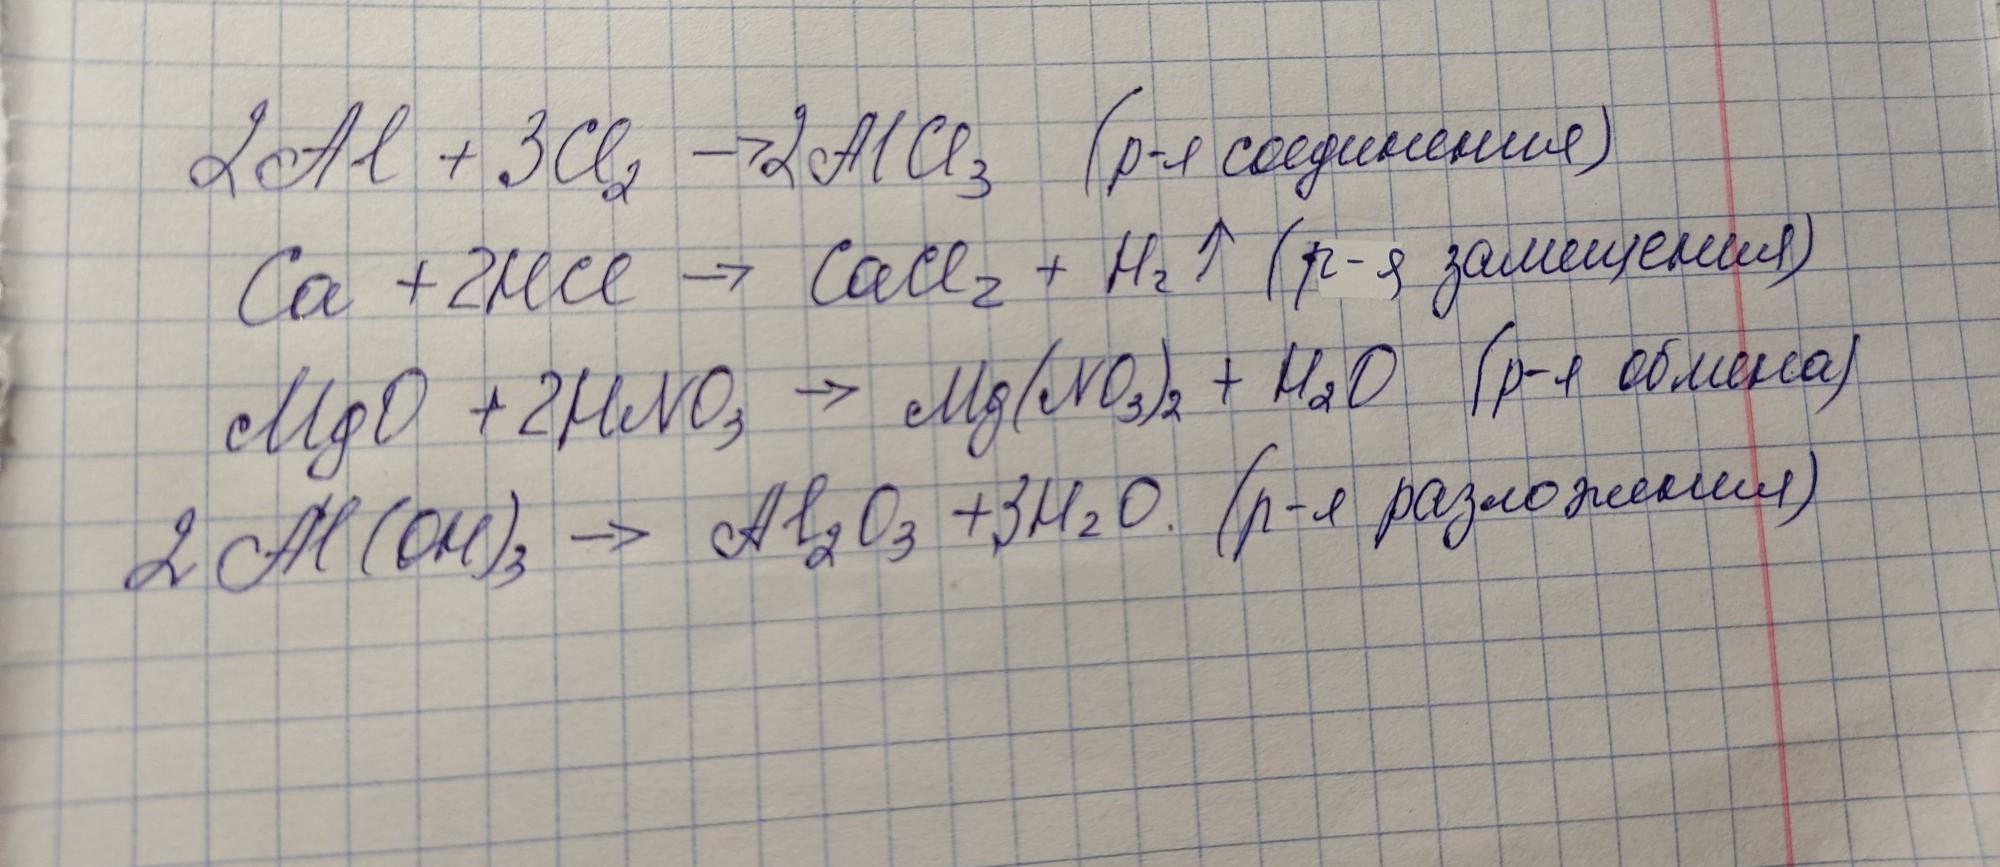 2Al + 3Cl₂ → 2AlCl₃ (р-я соединения)
Ca + 2HCl → CaCl₂ + H₂↑ (р-я замещения)
MgO + 2HNO₃ → Mg(NO₃)₂ + H₂O (р-я обмена)
2Al(OH)₃ → Al₂O₃ + 3H₂O. (р-я разложения)